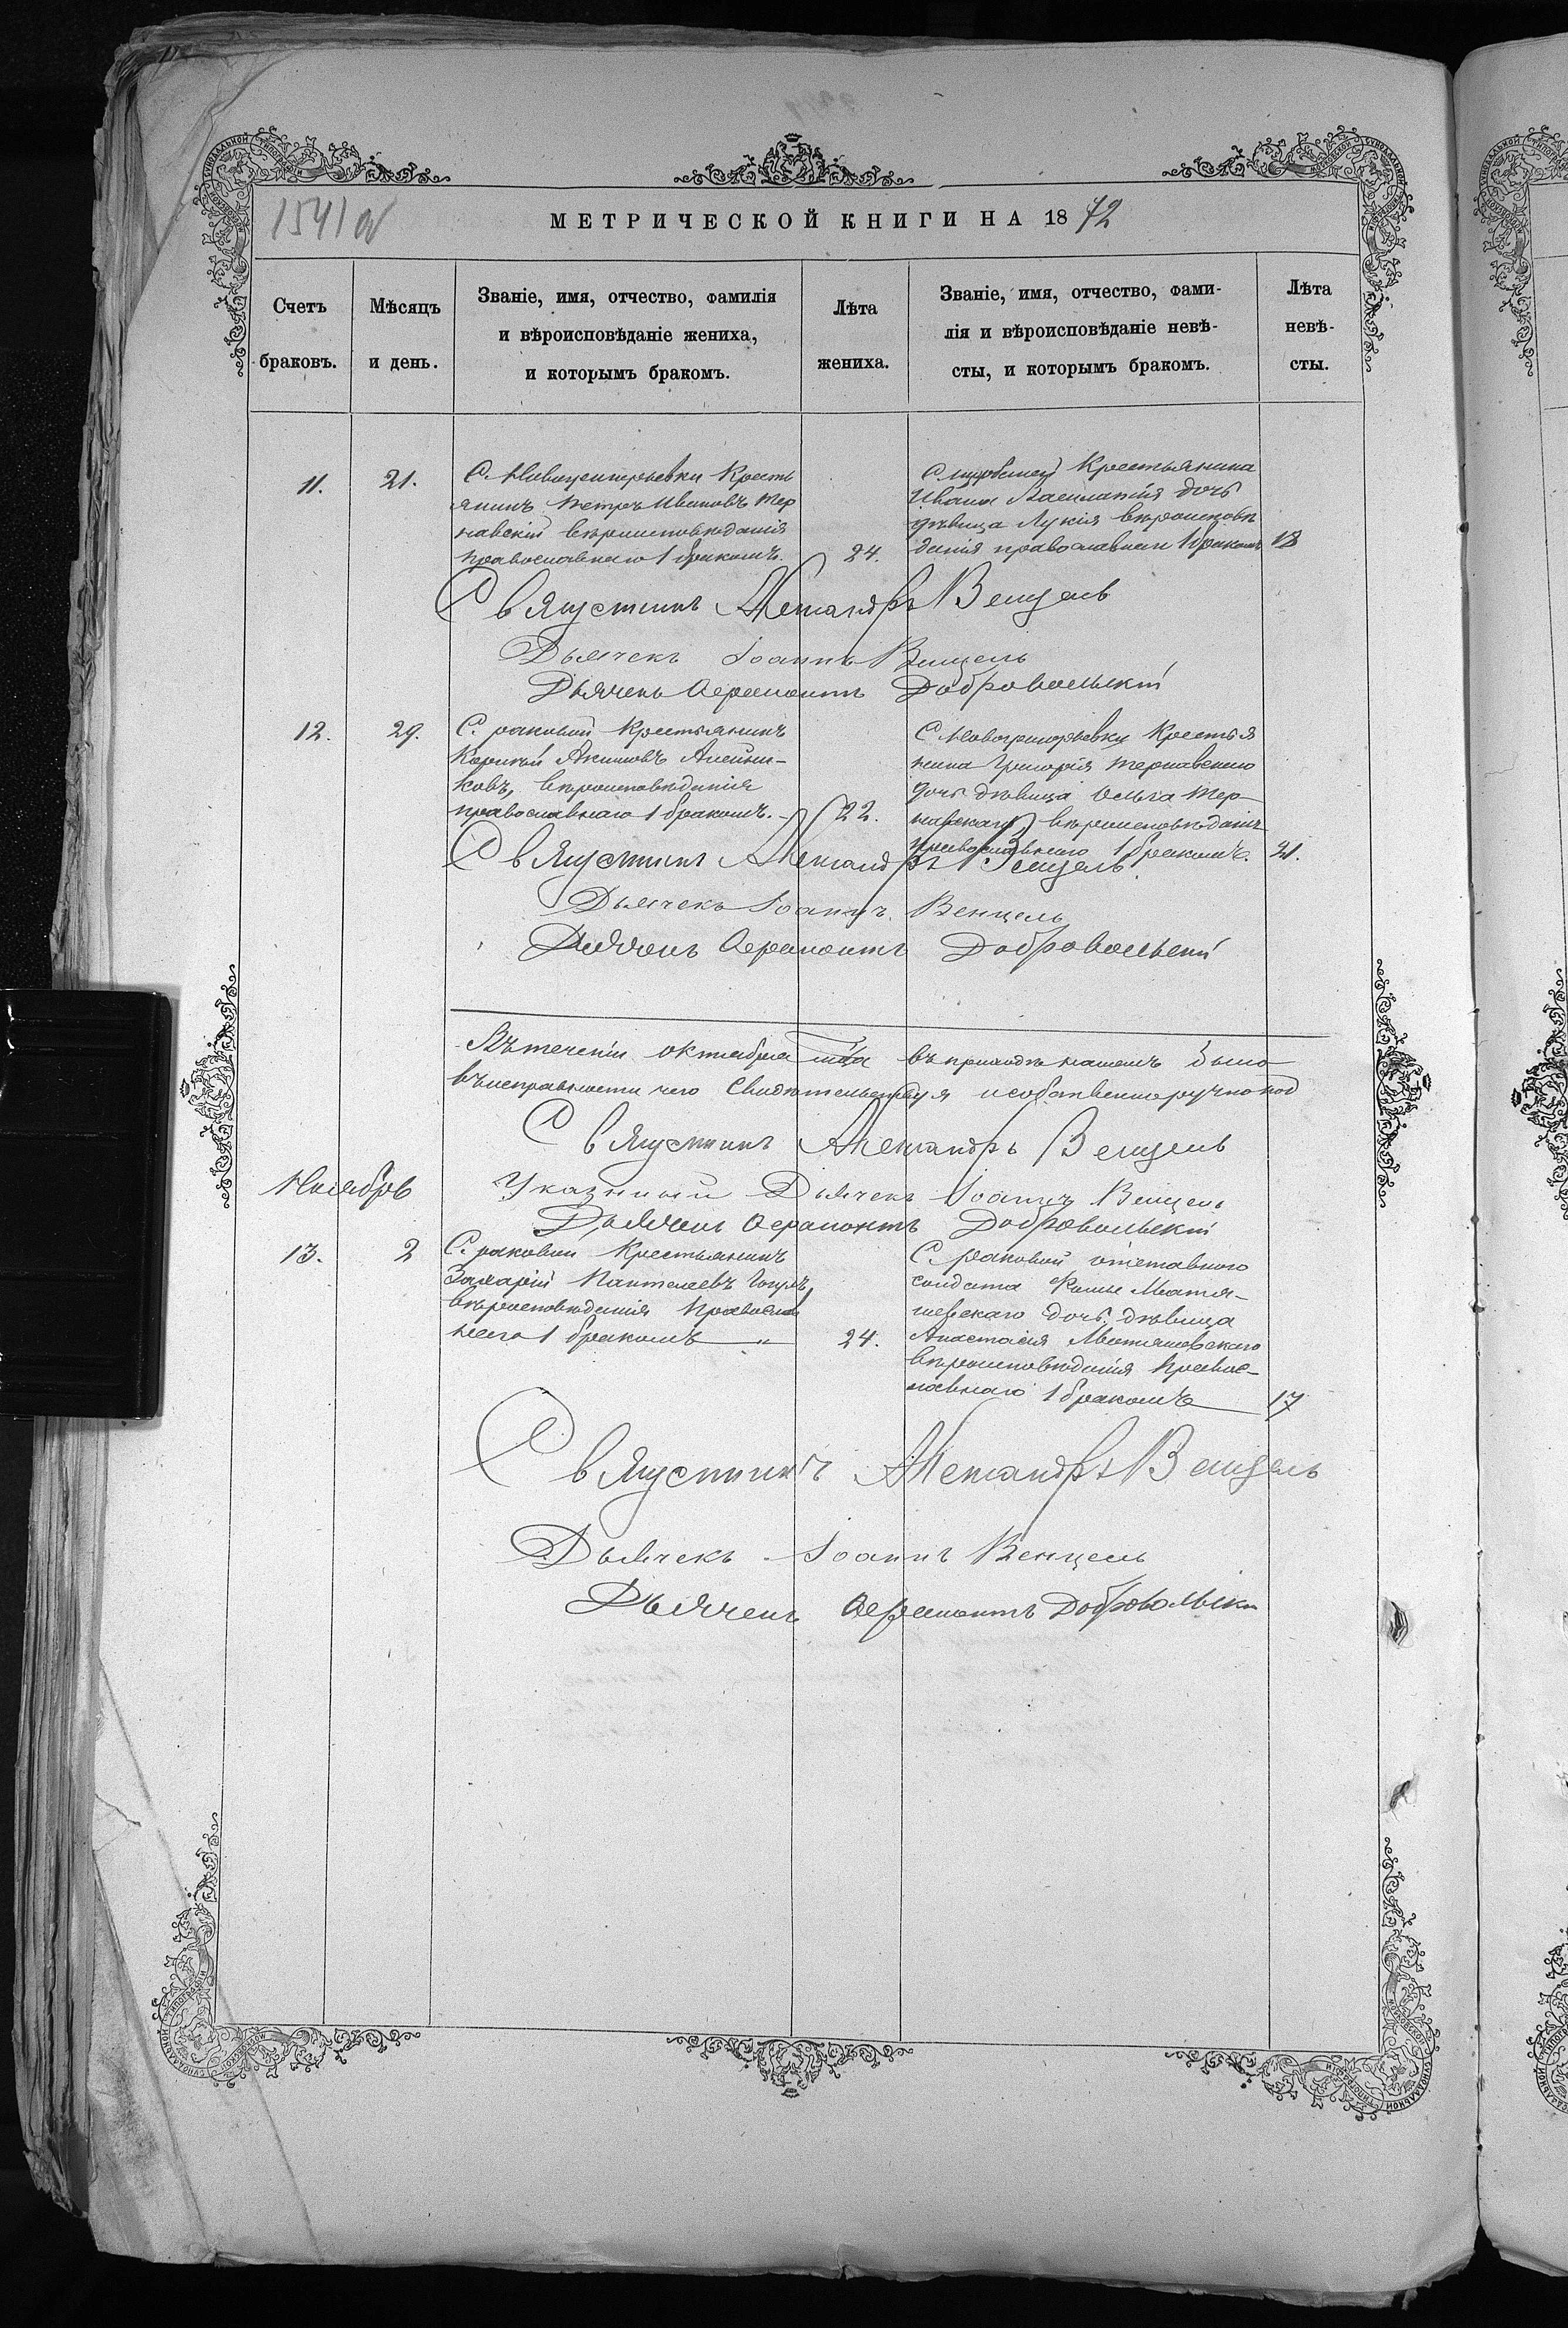 1541 об
МЕТРИЧЕСКОЙ КНИГИ НА 1872
Счетъ браковъ.
Мѣсяцъ и день.
Званіе, имя, отчество, фамилія
и вѣроисповѣданіе жениха,
и которымъ бракомъ.
Лѣта жениха.
Званіе, имя, отчество, фами-
лія и вѣроисповѣданіе невѣ-
сты, и которымъ бракомъ.
Лѣта
невѣ-
сты.
11.
21.
С. Кресть
янинъ Петръ Ивановъ Тер
навскій вѣроисповѣданія
православнаго 1 бракомъ.
24.
Крестьянина
Ивана дочь
дѣвица Лукія вѣроисповѣ
данія православнаго 1 бракомъ
18
Священникъ Александръ Венцель
Дьячекъ Іоаннъ Венцель
Дьячекъ Ферапонтъ Добровольскій
12.
29.
С. раковой Крестьянинъ
Акимовъ Алейни-
ковъ, вѣроисповѣданія
православнаго 1 бракомъ.
22.
С. Новогригорьевки Крестья
нина Григорія Тернавскаго
дочь дѣвица Ольга Тер
навскаго, вѣроисповѣданія
православнаго 1 бракомъ.
21.
Священникъ Александръ Венцель
Дьячекъ Іоаннъ Венцель
Дьячекъ Ферапонтъ Добровольскій
Въ теченіи октября мца въ приходѣ нашемъ было
въ исправности чего свидѣтельствуя и собственноручно под
Священникъ Александръ Венцель
Указный Дьячекъ Іоаннъ Венцель
Дьячекъ Ферапонтъ Добровольскій
Ноябрь
13.
2
С. раковой Крестьянинъ
Захарій Пантелеевъ
вѣроисповѣданія Православ
наго 1 бракомъ
24.
С. раковой отставного
солдата Фомы Матя-
шевскаго дочь дѣвица
Анастасія Матяшевскаго
вѣроисповѣданія Правос-
лавнаго 1 бракомъ
17
Священникъ Александръ Венцель
Дьячекъ Іоаннъ Венцель
Дьячекъ Ферапонтъ Добровольскій